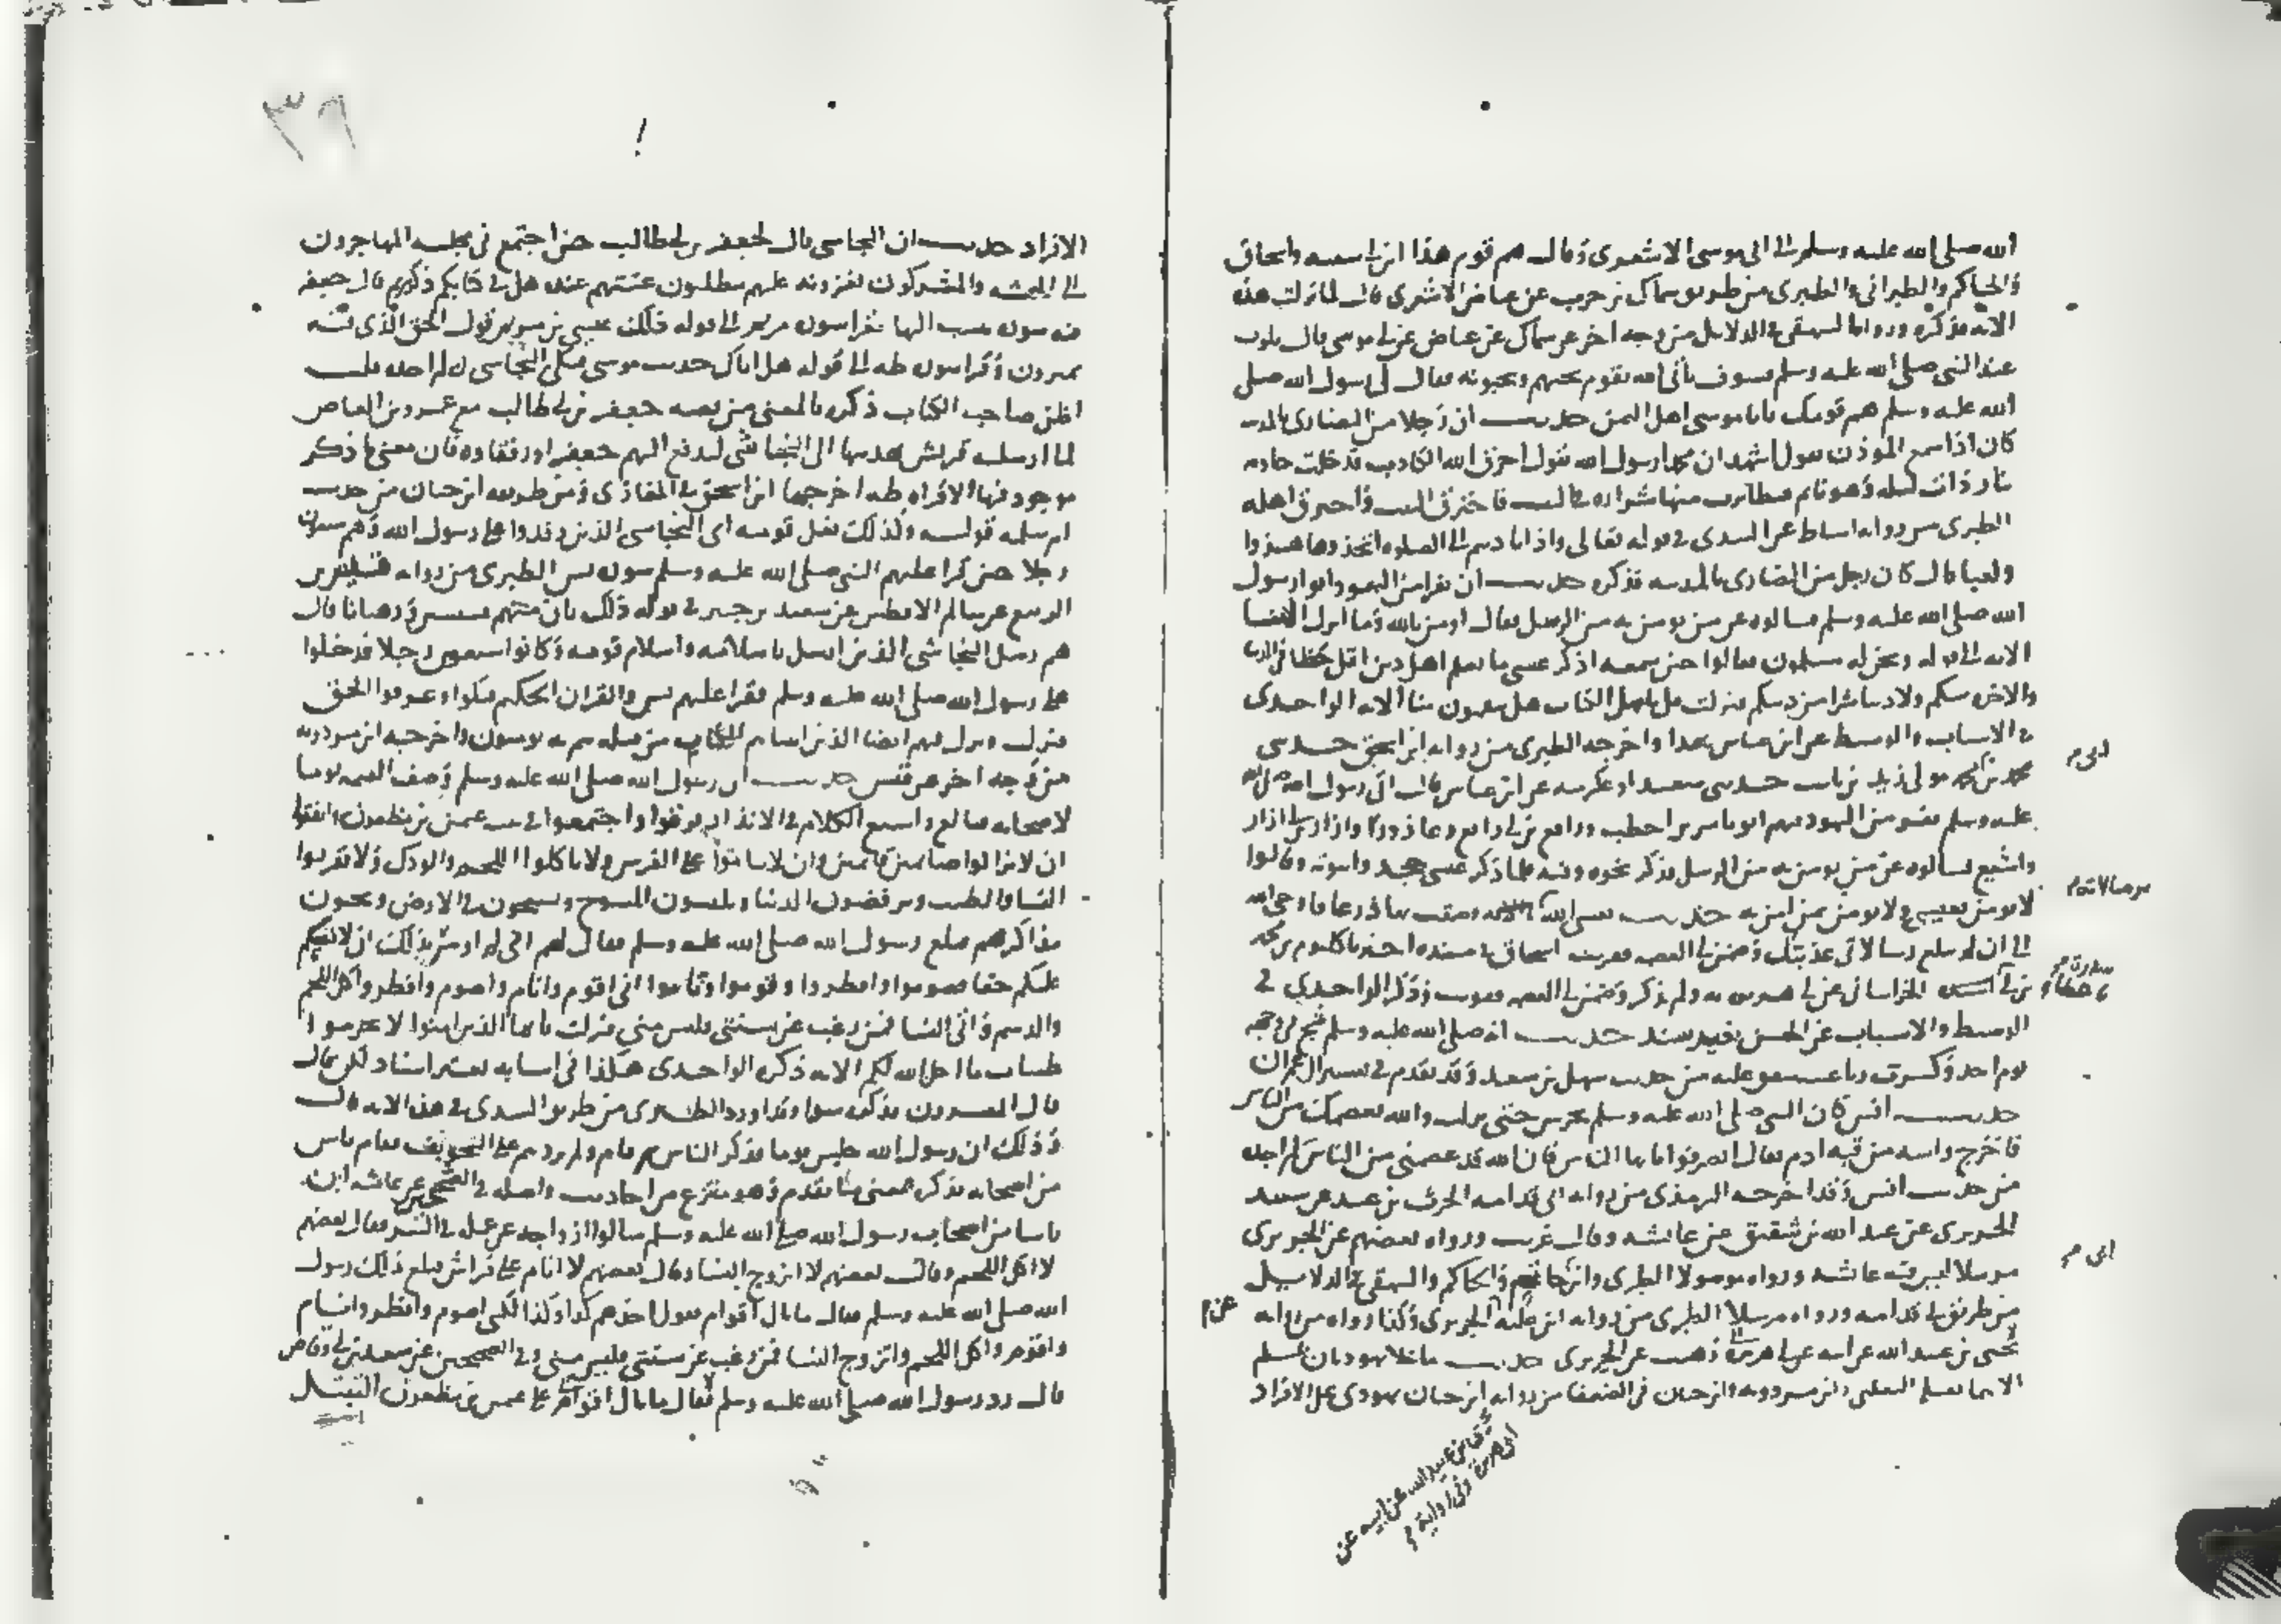 الله صلى الله عليه وسلم الى ابى موسى الاشعرى وقال هم قوم هذا ابن ابى سعبه واسحاق
والحاكم والطبرانى والطبرى من طريق سماك بن حرب عن عياض الاشعرى قال لما نزلت هذه
الايه فذكره ورواه البيهقى فى الدلايل من وجه اخر عن سماك عن عياض عن ابى موسى قال تلوت
عند النبى صلى الله عليه وسلم فسوف ياتى الله بقوم يحبهم ويحبونه فقال لى رسول الله صلى
الله عليه وسلم هم قومك يابا موسى اهل اليمن حديث ان رجلا من النصارى بالمدينه
كان اذا سمع الموذن يقول اشهد ان محمدا رسول الله يقول احرق الله الكاذب فدخلت خادمه
بنار ذات ليله وهو نايم فتطايرت منها شراره فى البيت فاحترق البيت واحترق اهله
الطبرى من روايه اسباط عن السدى فى قوله تعالى واذا ناديتم الى الصلوه اتخذوها هزوا
ولعبا قال كان رجل من النصارى بالمدينه فذكره حديث ان نفرا من اليهود اتوا رسول
الله صلى الله عليه وسلم فسالوه عن من يومن به من الرسل فقال اومن بالله وما انزل الينا
الايه الى قوله ونحن له مسلمون فقالوا حين سمعه اذكر عيسى ما نعلم اهل دين اقل حظا فى الدنيا
والاخره منكم ولا دينا شرا من دينكم فنزلت قل ياهل الكتاب هل تنقمون منا الايه الواحدى
فى الاسباب والوسيط عن ابن عباس بهذا واخرجه الطبرى من روايه ابن اسحق حدثنى
محمد بن ابى محمد مولى زيد بن ثابت حدثنى سعيد او عكرمه عن ابن عباس قال اتى رسول الله صلى الله
عليه وسلم نفر من اليهود فيهم ابو ياسر بن اخطب ورافع بن ابى رافع وعازورا وازار بن ابى ازار
واشيع فسالوه عن من يومن به من الرسل فذكر نحوه وفيه فلما ذكر عيسى جحدوا نبوته وقالوا
لا نومن بعيسى ولا نومن بمن امن به حديث بعثنى الله برسالاته فضقت بها ذرعا فاوحى الله
الى ان لم تبلغ رسالاتى عذبتك وضمن لى العصمه فقويت اسحاق فى مسنده اخبرنا كلثوم بن محمد
بن ابى سدره عطاء الخراسانى عن ابى هريره به ولم يذكر وضمن لى العصمه فقويت وذكر الواحدى فى
الوسيط والاسباب عن الحسن بغير سند حديث انه صلى الله عليه وسلم شج فى وجهه
يوم احد وكسرت رباعيته متفق عليه من حديث سهل بن سعد وقد تقدم فى تفسير ال عمران
حديث انس كان النبى صلى الله عليه وسلم يحرس حتى نزلت والله يعصمك من الناس
فاخرج راسه من قبه ادم فقال انصرفوا ياايها الناس فان الله قد عصمنى من الناس لم اجده
من حديث انس وقد اخرجه الترمذى من روايه ابى قدامه الحرث بن عبيد عن سعيد
الجريرى عن عبد الله بن شقيق عن عايشه وقال غريب ورواه بعضهم عن الجريرى
مرسلا ليس فيه عايشه ورواه موصولا الطبرى وابن ابى حاتم والحاكم والبيهقى فى الدلايل
من طريق ابى قدامه ورواه مرسلا الطبرى من روايه ابن عليه عن الجريرى وكذا رواه من روايه
يحيى بن عبيد الله عن ابيه عن ابى هريره وهيب عن الجريرى حديث ما خلا يهوديان بمسلم
الا هما بقتله الثعلبى وابن مردويه وابن حبان فى الضعفا من روايه ابن حبان يهودى على الافراد
الافراد حديث ان النجاشى قال لجعفر بن ابى طالب حين اجتمع فى مجلسه المهاجرون
الى الحبشه والمشركون يغرونه عليهم يتطلبون عنتهم عنده هل فى كتابكم ذكر مريم قال جعفر
فيه سوره تنسب اليها فقرا سوره مريم الى قوله ذلك عيسى بن مريم قول الحق الذى فيه
يمترون وقرا سوره طه الى قوله هل اتاك حديث موسى فبكى النجاشى لم اجده قلت
اظن صاحب الكتاب ذكره بالمعنى من قصه جعفر بن ابى طالب مع عمرو بن العاص
لما ارسله قريش بهديتها الى النجاشى ليدفع اليهم جعفر او رفقاوه فان معنى ما ذكر
موجود فيها الا قراه طه اخرجها ابن اسحق فى المغازى ومن طريقه ابن حبان من حديث
ام سلمه قوله ولذلك فعل قومه اى النجاشى الذين وفدوا على رسول الله وهم سبعون
رجلا حين قرا عليهم النبى صلى الله عليه وسلم سوره يس الطبرى من روايه قيس بن
الربيع عن سالم الافطس عن سعيد بن جبير فى قوله ذلك بان منهم قسيسين ورهبانا قال
هم رسل النجاشى الذين ارسل باسلامه واسلام قومه وكانوا سبعين رجلا فدخلوا
على رسول الله صلى الله عليه وسلم فقرا عليهم يس والقران الحكيم فبكوا وعرفوا الحق
فنزلت ونزل فيهم ايضا الذين اتيناهم الكتاب من قبله هم به يومنون واخرجه ابن مردويه
من وجه اخر عن قيس حديث ان رسول الله صلى الله عليه وسلم وصف القيمه يوما
لاصحابه فبالغ واشبع الكلام فى الانذار فرقوا واجتمعوا فى بيت عثمن بن مظعون واتفقوا
ان لا يزالوا صايمين قايمين وان لا يناموا على الفرش ولا ياكلوا اللحم والودك ولا يقربوا
النسا والطيب ويرفضون الدنيا ويلبسون المسوح ويسيحون فى الارض ويجبون
مذاكيرهم فبلغ رسول الله صلى الله عليه وسلم فقال لهم انى لم اومر بذلك ان لانفسكم
عليكم حقا فصوموا وافطروا وقوموا وناموا انى اقوم وانام واصوم وافطر واكل اللحم
والدسم واتى النسا فمن رغب عن سنتى فليس منى فنزلت ياايها الذين امنوا لا تحرموا
طيبات ما احل الله لكم الايه ذكره الواحدى هكذا فى اسبابه بغير اسناد لكن قال
قال المفسرون فذكره سوا وقد اورد الطبرى من طريق السدى فى هذه الايه قال
وذلك ان رسول الله جلس يوما فذكر الناس ثم قام ولم يزدهم على التخويف فقام ناس
من اصحابه فذكره بمعنى ما تقدم وهو منتزع من احاديث واصله فى الصحيحين عن عايشه ان
ناسا من اصحاب رسول الله صلى الله عليه وسلم سالوا ازواجه عن عمله فى السر فقال بعضهم
لا اكل اللحم وقال بعضهم لا اتزوج النسا وقال بعضهم لا انام على فراش فبلغ ذلك رسول
الله صلى الله عليه وسلم فقال ما بال اقوام يقول احدهم كذا وكذا لكنى اصوم وافطر وانام
واقوم واكل اللحم واتزوج النسا فمن رغب عن سنتى فليس منى وفى الصحيحين عن سعد بن ابى وقاص
قال رد رسول الله صلى الله عليه وسلم على عثمن بن مظعون التبتل